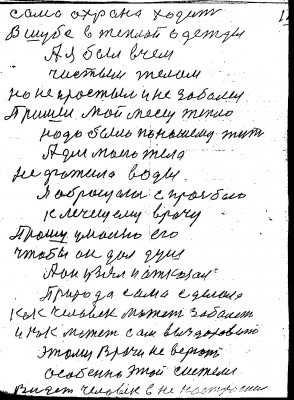 сама охрана ходит
В шубе в теплой одежды
А я был в чем
чистым телом
но не простыл и не заболел
Пришли мой месец тепло
надо было по нашему жить
А для моего тела
не хватило воды
Я обращался с прозьбою
К лечещему врачу
Прошу умоляю его
чтобы он дал душ
А он узял и отказал
Природа сама сделала
Как человек может заболеть
и как может сам выздороветь
этому врачи не верят
особенно этой системе
Видят человек в не настроении